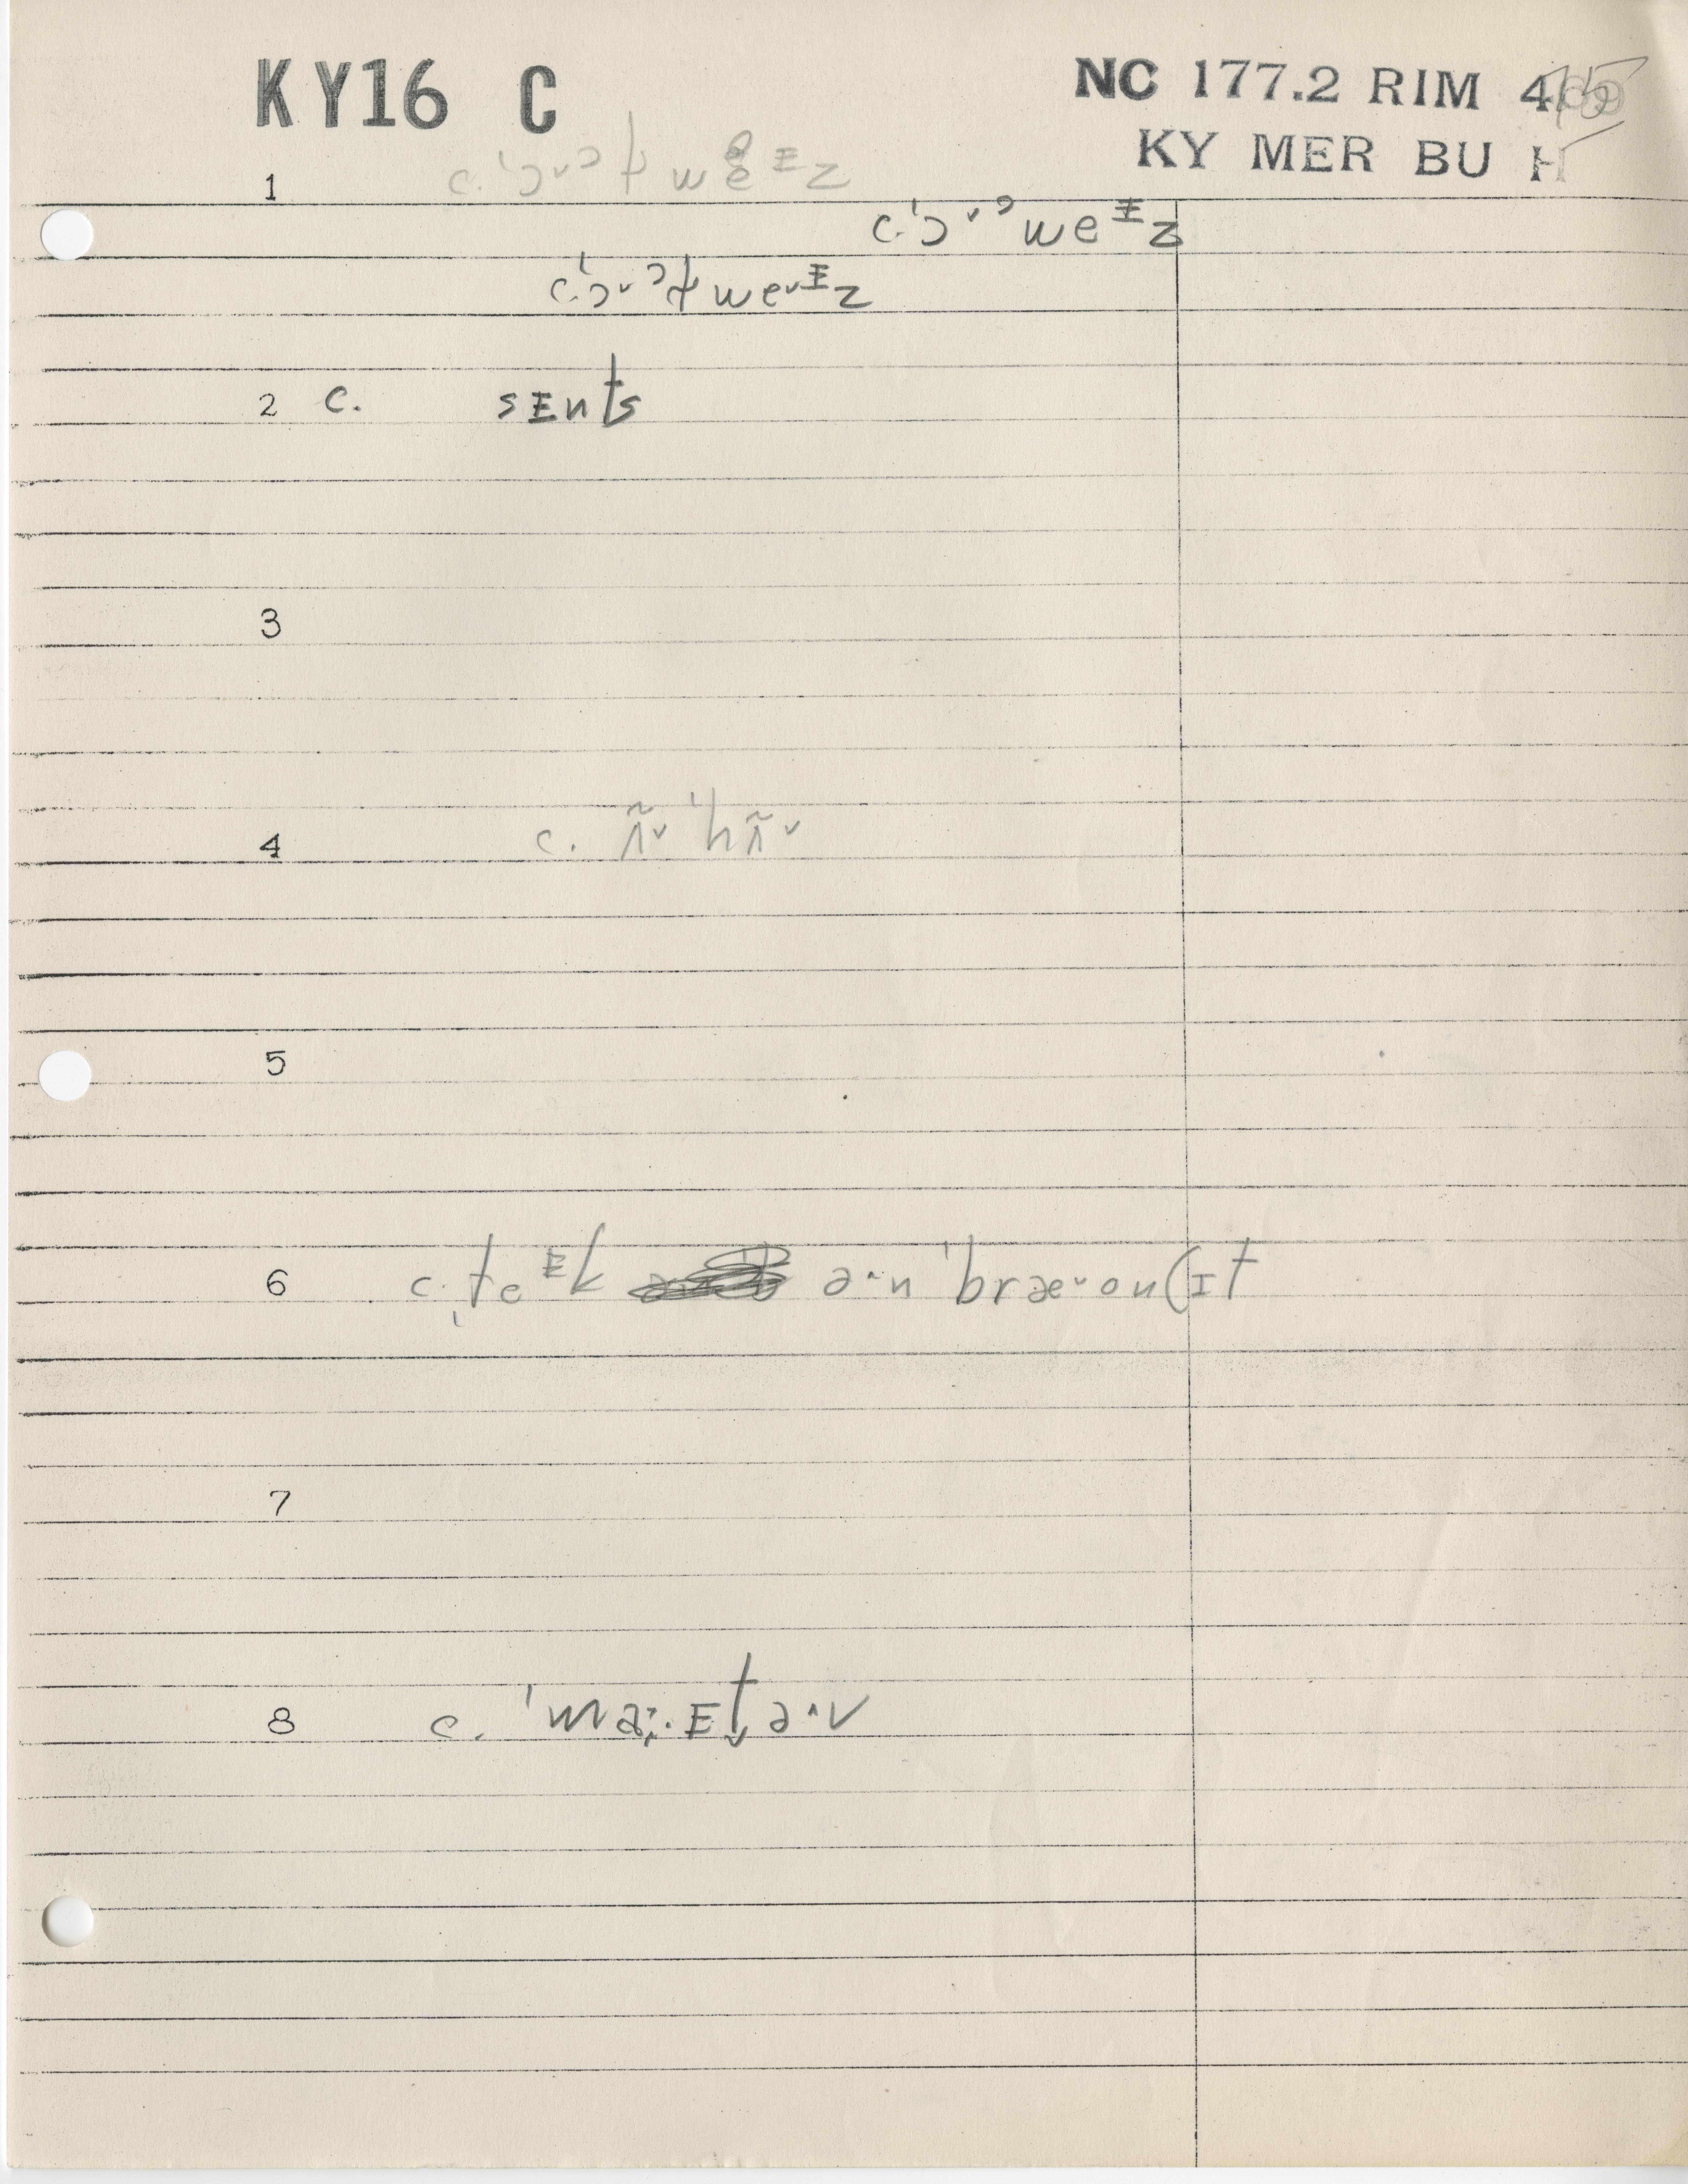 KY16 C
NC 177.2 RIM 4
KY MER BU H
1 c. ˈɔ˅ɔt we ᴵz
c. ˈɔ˅ɔ weᴵz
c. ˈɔ˅ɔt we˅ᴵz
2 c. sɛnts
3
4 c. ʌ̃˅ ˈhʌ̃˅
5
6 c. ˌteᴱk ə˄n ˈbræ˅on(ɪt
7
8 c. ˈma;·ɛt̬ ə˄v